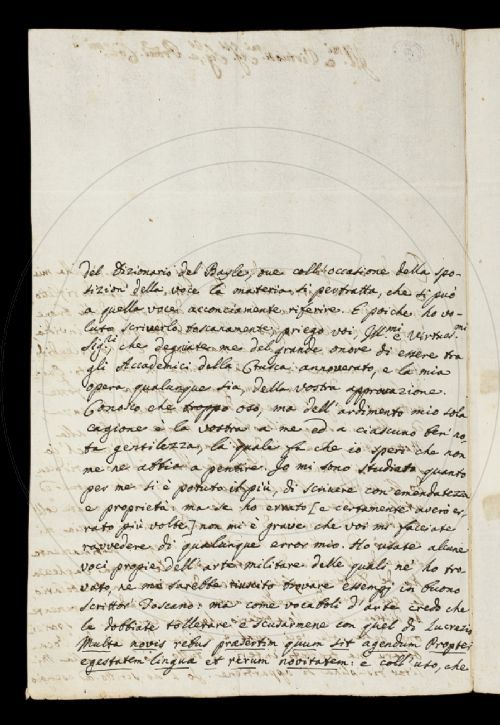 del Dizionario del Bayle, due coll'occasione della spo-
sizion' della voce la materia si pertratta, che si può
a quella voce acconciamente riferire. E poiche ho vo-
luto scriverlo toscanamente; priego voi, Ill.mi e Virtuos.mi
Sig.ri, che degnate me del grande onore di essere tra
gli Accademici della Crusca annoverato, e la mia
opera, qualunque sia, della vostra approvazione.
Conosco che troppo oso, ma dell'ardimento mio sola
cagione è la vostra a me ed a ciascuno ben no-
ta gentilezza, la quale fa che io speri che non
me ne abbia a pentire. Io mi sono studiato quanto
per me si è potuto il più, di scrivere con emendatezza
e proprietà: ma se ho errato [e certamente averò er-
rato più volte] non mi è grave che voi mi facciate
ravvedere di qualunque error mio. Ho usate alcune
voci proprie dell'arte militare delle quali ne' ho tro
vato, ne mi sarebbe riuscito trovare essempj in buono
Scrittor Toscano: ma come vocaboli d'arte credo che
le dobbiate tollerare e scusarmene con quel di Lucrezio
Multa novis rebus praesertim quum sit agendum Propter
egestatem linguae et rerum novitatem: e coll'uso, che